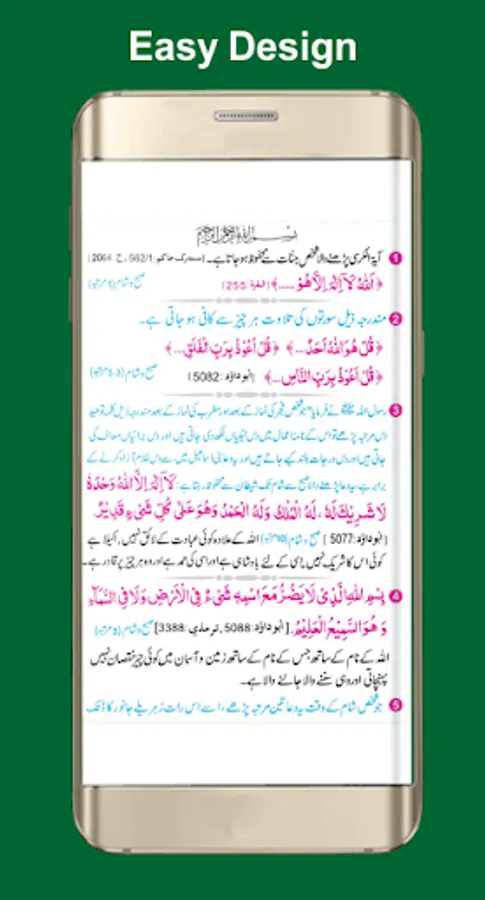 Easy Design
بسم اللہ الرحمن الرحیم
1 آیۃ الکرسی پڑھنے والا شخص جنات سے محفوظ ہو جاتا ہے۔ (مستدرک حاکم: 562/1، ح: 2064)
﴿ اَللّٰہُ لَاۤ اِلٰہَ اِلَّا ھُوَ ..... ﴾ (البقرۃ: 255) صبح و شام (1 مرتبہ)
2 مندرجہ ذیل سورتوں کی تلاوت ہر چیز سے کافی ہو جاتی ہے۔
﴿ قُلْ ھُوَ اللّٰہُ اَحَدٌ... ﴾ ﴿ قُلْ اَعُوْذُ بِرَبِّ الْفَلَقِ... ﴾
﴿ قُلْ اَعُوْذُ بِرَبِّ النَّاسِ... ﴾ (ابوداؤد: 5082) صبح و شام (3،3 مرتبہ)
3 رسول اللہ ﷺ نے فرمایا: جو شخص فجر کی نماز کے بعد اور مغرب کی نماز کے بعد مندرجہ ذیل کلمہ توحید
دس مرتبہ پڑھے تو اس کے نامۂ اعمال میں دس نیکیاں لکھ دی جاتی ہیں اور دس برائیاں معاف کی
جاتی ہیں اور دس درجات بلند کیے جاتے ہیں اور یہ دعا بنی اسماعیل میں سے دس غلام آزاد کرنے کے
برابر ہے، یہ دعا پڑھنے والا صبح سے شام تک شیطان سے محفوظ رہتا ہے: لَاۤ اِلٰہَ اِلَّا اللّٰہُ وَحْدَہٗ
لَا شَرِیْکَ لَہٗ، لَہُ الْمُلْکُ وَلَہُ الْحَمْدُ وَھُوَ عَلٰی کُلِّ شَیْءٍ قَدِیْرٌ
[ابوداؤد: 5077] صبح و شام (10 مرتبہ) اللہ کے علاوہ کوئی عبادت کے لائق نہیں، اکیلا ہے
کوئی اس کا شریک نہیں، اسی کے لئے بادشاہی ہے اور اسی کی حمد ہے اور وہ ہر چیز پر قادر ہے۔
4 بِسْمِ اللّٰہِ الَّذِیْ لَا یَضُرُّ مَعَ اسْمِہٖ شَیْءٌ فِی الْاَرْضِ وَلَا فِی السَّمَآءِ
وَ ھُوَ السَّمِیْعُ الْعَلِیْمُ. [ابوداؤد: 5088، ترمذی: 3388] صبح و شام (3 مرتبہ)
اللہ کے نام کے ساتھ جس کے نام کے ساتھ زمین و آسمان میں کوئی چیز نقصان نہیں
پہنچاتی اور وہی سننے والا جاننے والا ہے۔
5 جو شخص شام کے وقت یہ دعا تین مرتبہ پڑھے، اسے اس رات زہریلے جانور کا ڈنک